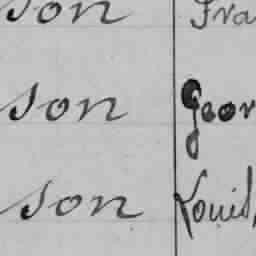 son Fra
son Geor
son Louis